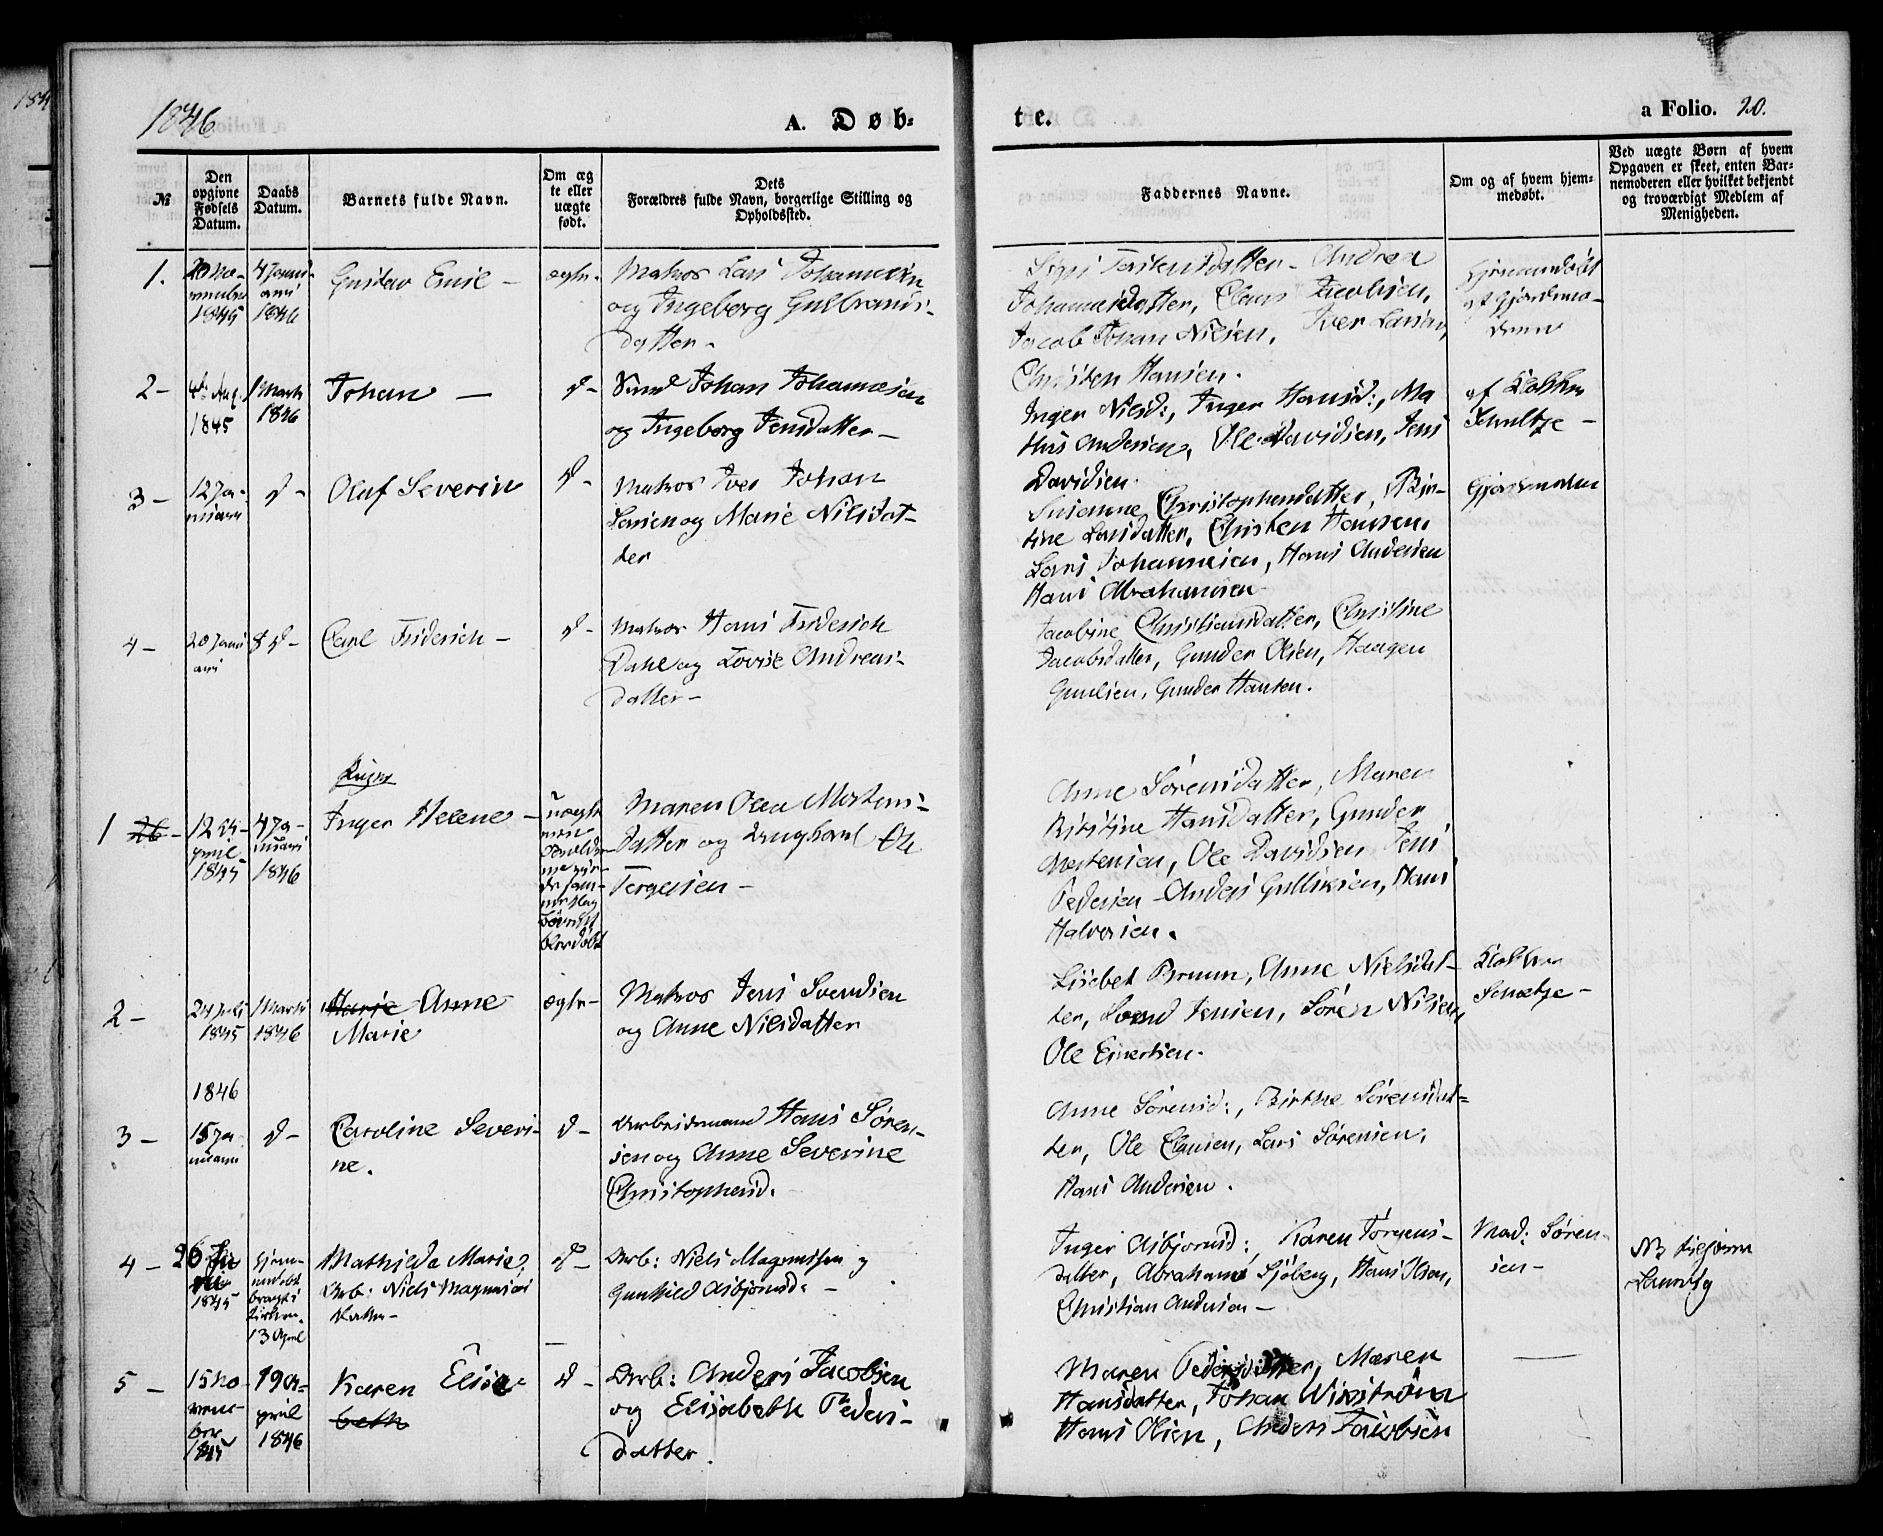 1846
A. Døb=
te.
a Folio. 20.
№
Den
opgivne
Fødsels
Datum.
Daabs
Datum.
Barnets fulde Navn.
Om æg
te eller
uægte
født.
Dets
Forældres fulde Navn, borgerlige Stilling og
Opholdssted.
Faddernes Navne.
Om og af hvem hjem=
medøbt.
Ved uægte Børn af hvem
Opgaven er skeet, enten Bar=
nemoderen eller hvilket bekjendt
og troværdigt Medlem af
Menigheden.
1.
1845
4 Janu-
ari
1846
Gustav Emil –
ægte.
Matros Lars Johannesen
og Ingeborg Gulbrands-
datter –
Torstensdatter – Andrea
Johannesdatter, Claus Jacobsen,
Jacob Johan Nilsen, Iver Larsen,
Christen Hansen.
hjemmedøbt
af Gjordemo-
deren
2 –
1845
1 Marts
1846
Johan –
d –
Johan Johannesen
og Ingeborg Jensdatter –
Inger Nilsd:, Inger Hansd:, Ma
this Andersen, Ole Davidsen, Jens
Davidsen.
af Klokker
Schultze –
3 –
12 Ja-
nuari
d –
Olaf Severin
d –
Matros Iver Johan
Larsen og Marie Nilsdat-
ter
Susanne Christophersdatter, Ber-
tine Larsdatter, Christen Hansen,
Lars Johannesen, Hans Andersen
Hans Abrahamsen
Gjordemoderen
4 –
20 Janu
ari
d –
Carl Friderich –
d –
Matros Hans Friderich
Dahl og Lovise Andreas-
datter –
Jacobine Christiansdatter, Christine
Jacobsdatter, Gunder Olsen, Haagen
Gundersen, Gunder Hansen.
Piger
1 26 –
12 A-
pril
1845
4 Ja-
nuari
1846
Inger Helene –
uægte
Maren Olea Mortens-
datter og Ungkarl Ole
Jørgensen –
Anne Sørensdatter, Maren
Kirstine Hansdatter, Gunder
Mortensen, Ole Davidsen Jens
Pedersen – Anders Gulliksen, Hans
Halvorsen.
2 –
24 Juli
1845
1 Marts
1846
Marie Anne
Marie
ægte –
Matros Jens Svendsen
og Anne Nilsdatter
Lisebet Bruun, Anne Nielsdat-
ter, Svend Jensen, Søren Nilsen,
Ole Evertsen.
Klokker
Schultze –
1846
3 –
15 Ja-
nuari
d –
Caroline Severi-
ne.
d –
Arbeidsmand Hans Søren-
sen og Anne Severine
Christophersd.
Anne Sørensd:, Birthe Sørensdat-
ter, Ole Clausen, Lars Sørensen,
Hans Andersen.
4 –
26
1845
hjem-
medøbt
bragt i
Kirken
13 April
Mathilde Marie,
Arb: Niels Magnussøns
Datter –
d –
Arb: Niels Magnussøn og
Gunhild Asbjørnsd: –
Inger Asbjørnsd:, Karen Jørgens-
datter, Abraham Sjøberg, Hans Olsen,
Christian Andersen –
Mad: Søren-
sen –
NB
Laurvig
5 –
15 No-
vem-
ber
1845
19 A-
pril
1846
Karen Elise
beth
d –
Arb: Anders Jacobsen
og Elisabeth Peders-
datter.
Maren Pedersdatter, Maren
Hansdatter, Johan Winstrøm
Hans Olsen, Anders Jacobsen